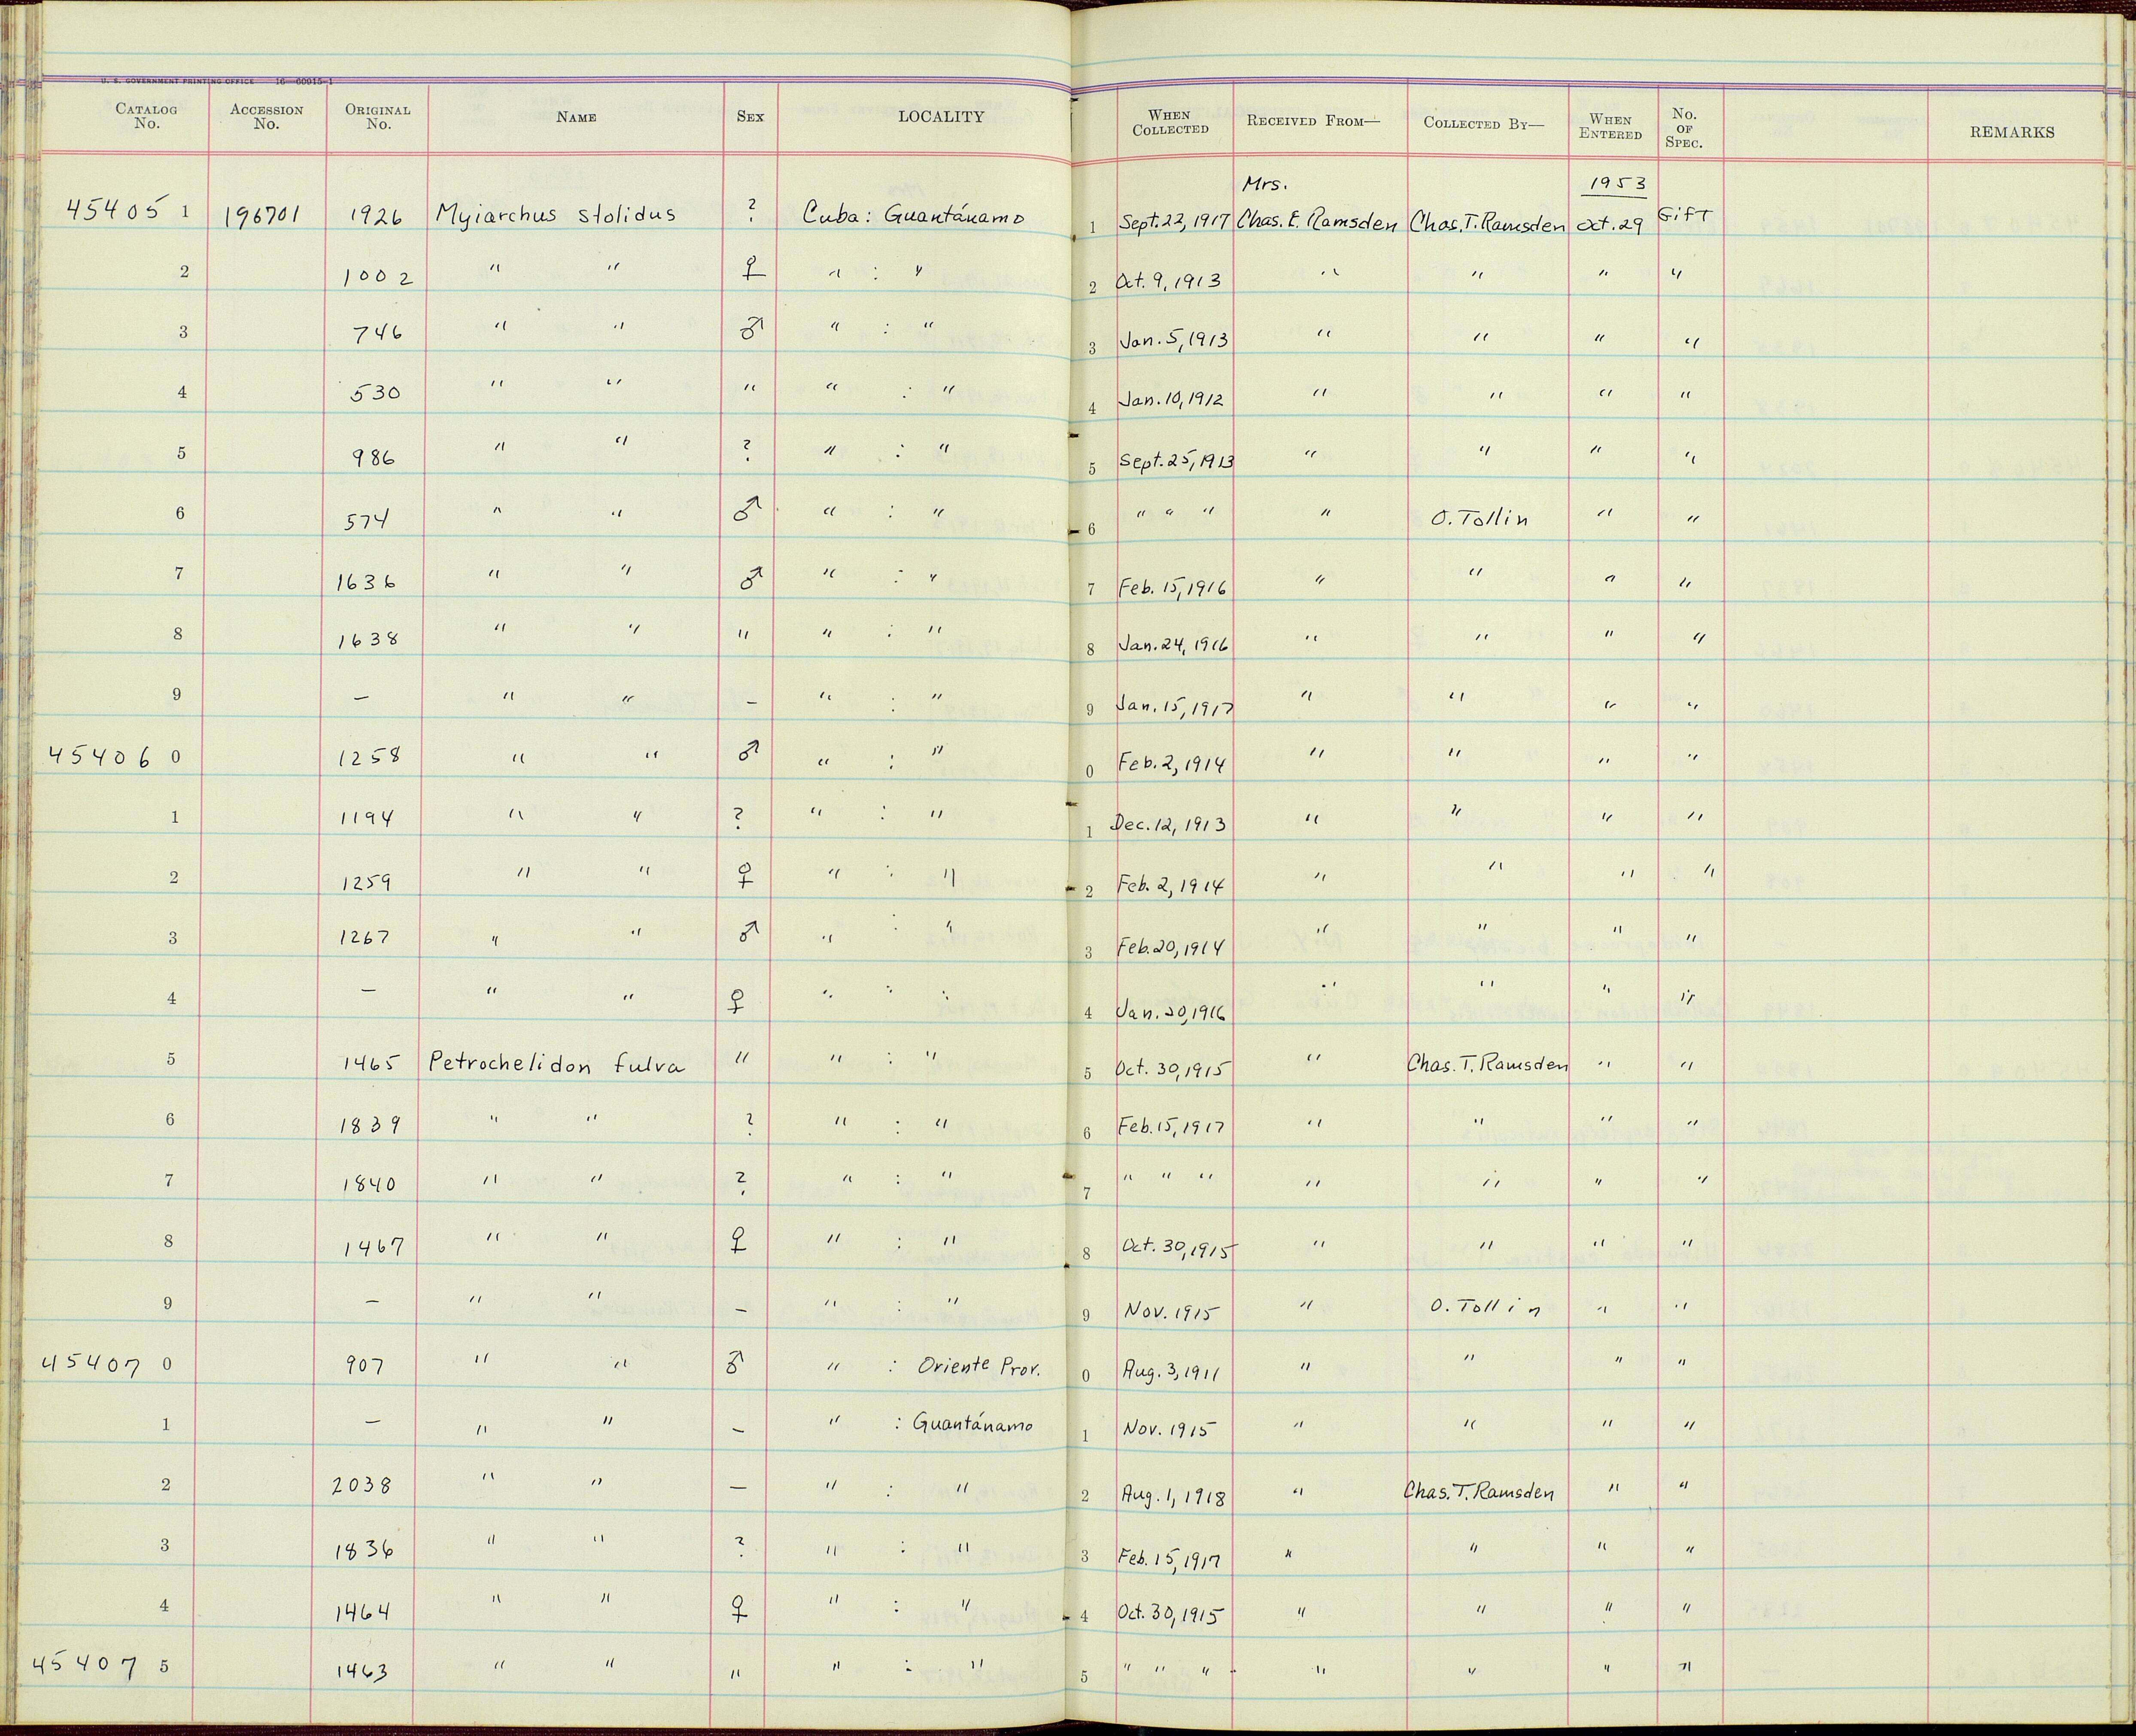 U. S. GOVERNMENT PRINTING OFFICE 16—60015-1
CATALOG No. ACCESSION No. ORIGINAL No. NAME SEX LOCALITY WHEN COLLECTED RECEIVED FROM— COLLECTED BY— WHEN ENTERED No. OF SPEC. REMARKS
Mrs. 1953
45405 1 196701 1926 Myiarchus stolidus ? Cuba: Guantánamo 1 Sept. 22, 1917 Chas. E. Ramsden Chas. T. Ramsden Oct. 29 Gift
2 1002 " " ♀ " : " 2 Oct. 9, 1913 " " " "
3 746 " " ♂ " : " 3 Jan. 5, 1913 " " " "
4 530 " " " " : " 4 Jan. 10, 1912 " " " "
5 986 " " ? " : " 5 Sept. 25, 1913 " " " "
6 574 " " ♂ " : " 6 " " " " O. Tollin " "
7 1636 " " ♂ " : " 7 Feb. 15, 1916 " " " "
8 1638 " " " " : " 8 Jan. 24, 1916 " " " "
9 — " " – " : " 9 Jan. 15, 1917 " " " "
45406 0 1258 " " ♂ " : " 0 Feb. 2, 1914 " " " "
1 1194 " " ? " : " 1 Dec. 12, 1913 " " " "
2 1259 " " ♀ " : " 2 Feb. 2, 1914 " " " "
3 1267 " " ♂ " : " 3 Feb. 20, 1914 " " " "
4 — " " ♀ " : " 4 Jan. 20, 1916 " " " "
5 1465 Petrochelidon fulva " " : " 5 Oct. 30, 1915 " Chas. T. Ramsden " "
6 1839 " " ? " : " 6 Feb. 15, 1917 " " " "
7 1840 " " ? " : " 7 " " " " " " "
8 1467 " " ♀ " : " 8 Oct. 30, 1915 " " " "
9 — " " – " : " 9 Nov. 1915 " O. Tollin " "
45407 0 907 " " ♂ " : Oriente Prov. 0 Aug. 3, 1911 " " " "
1 — " " – " : Guantánamo 1 Nov. 1915 " " " "
2 2038 " " — " : " 2 Aug. 1, 1918 " Chas. T. Ramsden " "
3 1836 " " ? " : " 3 Feb. 15, 1917 " " " "
4 1464 " " ♀ " : " 4 Oct. 30, 1915 " " " "
45407 5 1463 " " " " : " 5 " " " " " " "